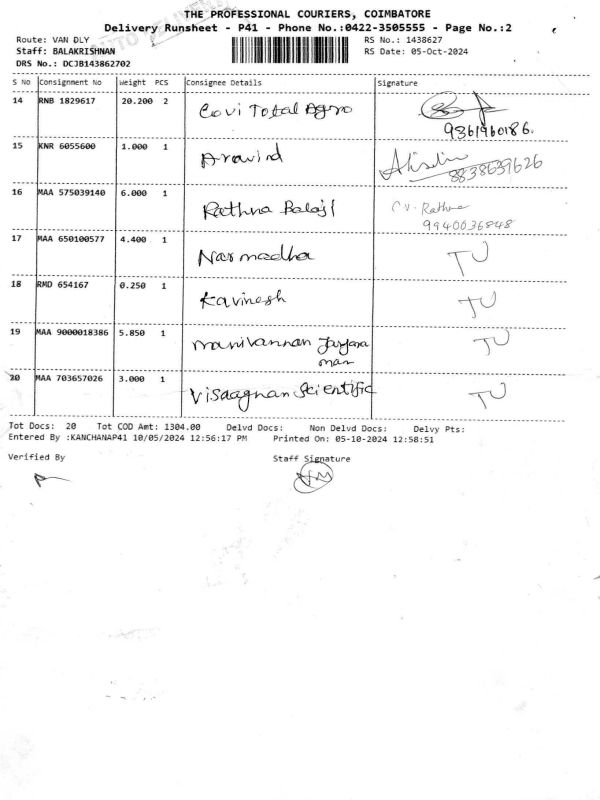 THE PROFESSIONAL COURIERS, COIMBATORE
Delivery Runsheet - P41 - Phone No.:0422-3505555 - Page No.:2
Route: VAN DLY RS No.: 1438627
Staff: BALAKRISHNAN RS Date: 05-Oct-2024
DRS No.: DCJB143862702
S No Consignment No Weight PCS Consignee Details Signature
14 RNB 1829617 20.200 2 Covi Total Agro
9361960186.
15 KNR 6055600 1.000 1 Aravind
8838639626
16 MAA 575039140 6.000 1 Rathna Balaji C.V. Rathna
9940036848
17 MAA 650100577 4.400 1 Narmadha TU
18 RMD 654167 0.250 1 Kavinesh TU
19 MAA 9000018386 5.850 1 Manivannan Jayara TU
man
20 MAA 703657026 3.000 1 Visaagnan Scientific TU
Tot Docs: 20 Tot COD Amt: 1304.00 Delvd Docs: Non Delvd Docs: Delvy Pts:
Entered By :KANCHANAP41 10/05/2024 12:56:17 PM Printed On: 05-10-2024 12:58:51
Verified By Staff Signature